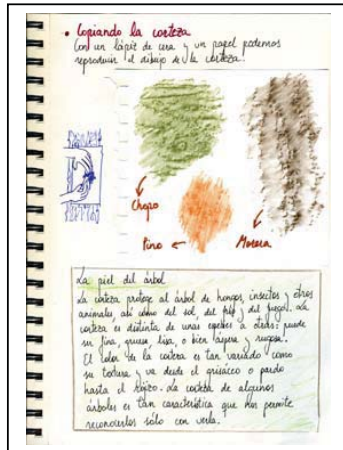 • Copiando la corteza
Con un lápiz de cera y un papel podemos
reproducir el dibujo de la corteza.
Chopo
Pino
Morera
La piel del árbol
La corteza protege al árbol de hongos, insectos y otros
animales, así como del sol, del frío y del fuego. La
corteza es distinta de unas especies a otras: puede
ser fina, gruesa, lisa, o bien áspera y rugosa.
El color de la corteza es tan variado como
su textura y va desde el grisáceo o pardo
hasta el rojizo. La corteza de algunos
árboles es tan característica que nos permite
reconocerlos sólo con verla.